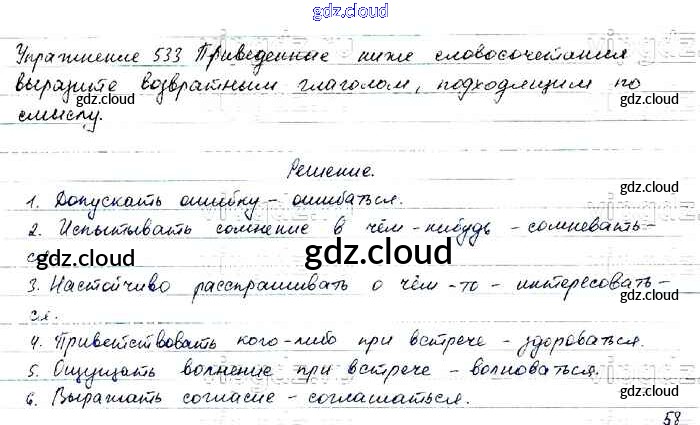 gdz.cloud
Упражнение 533 Приведенные ниже словосочетания
выразите возвратным глаголом, подходящим по
gdz.cloud gdz.cloud
смыслу.
Решение.
gdz.cloud
1. Допускать ошибку - ошибаться.
2. Испытывать сомнение в чём-нибудь - сомневать-
ся.
gdz.cloud
3. Настойчиво расспрашивать о чём-то - интересовать-
gdz.cloud
ся.
4. Приветствовать кого-либо при встрече - здороваться.
5. Ощущать волнение при встрече - волноваться.
gdz.cloud gdz.cloud
6. Выражать согласие - соглашаться.
58